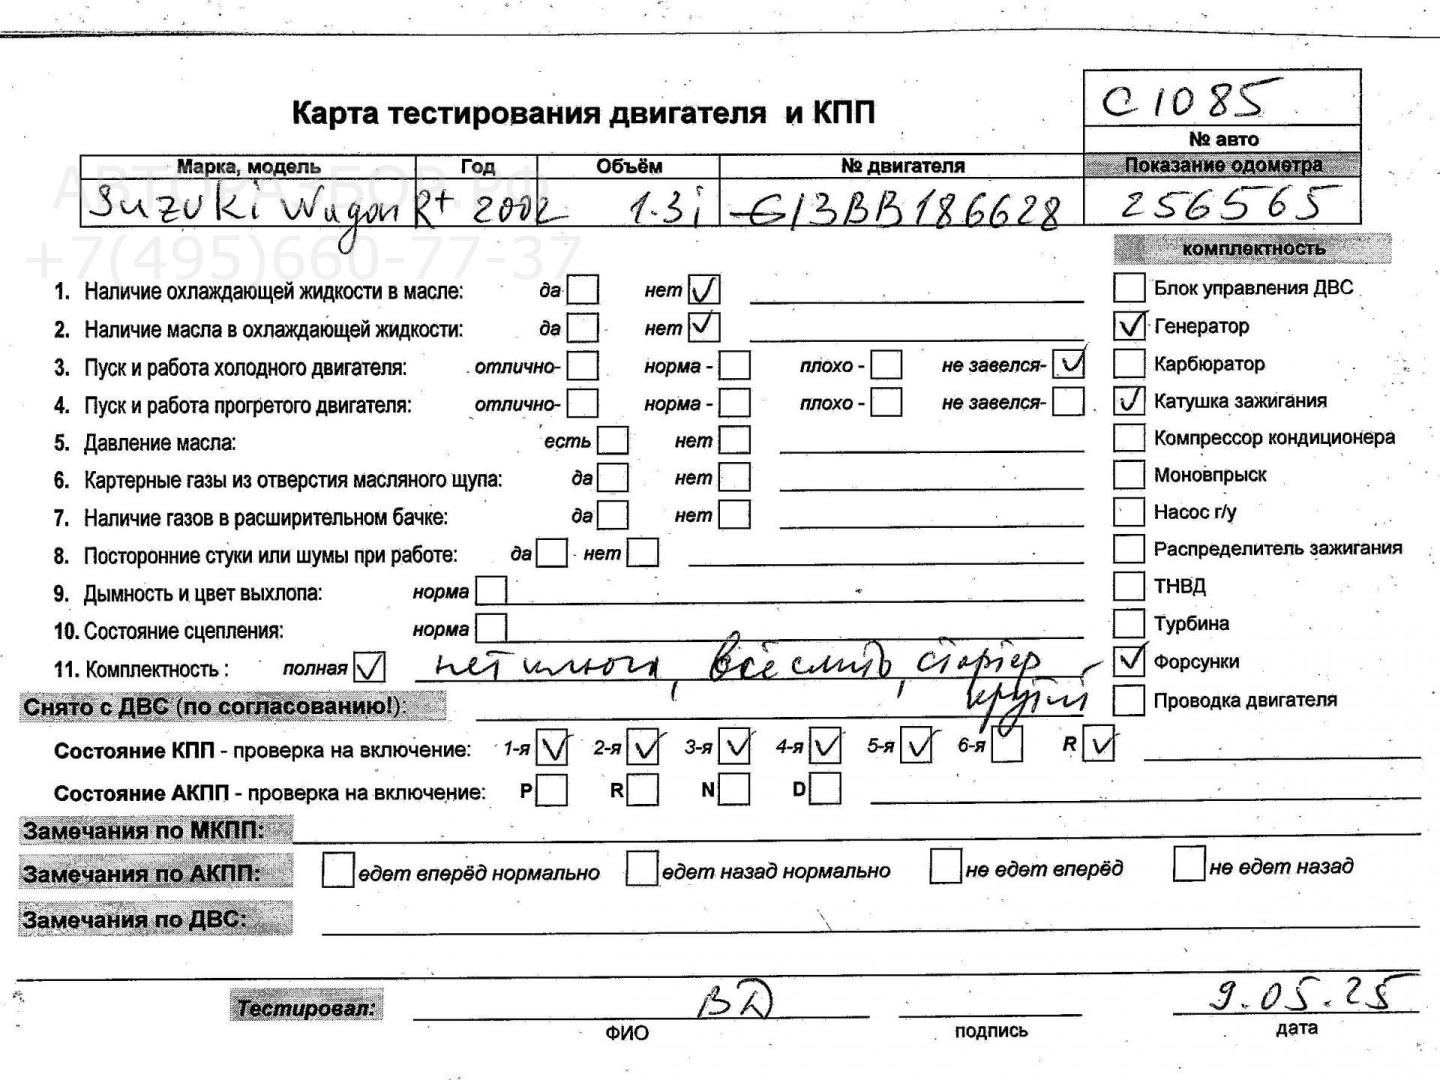 С1085
Карта тестирования двигателя и КПП
№ авто
Марка, модель Год Объём № двигателя Показание одометра
АВТОРАЗБОР.РФ
Suzuki Wagon R+ 2002 1.3i G13BB186628 256565
+7(495)660-77-37
комплектность
1. Наличие охлаждающей жидкости в масле: да нет ✓
Блок управления ДВС
2. Наличие масла в охлаждающей жидкости: да нет ✓
✓ Генератор
3. Пуск и работа холодного двигателя: отлично- норма - плохо - не завелся- ✓
Карбюратор
4. Пуск и работа прогретого двигателя: отлично- норма - плохо - не завелся-
✓ Катушка зажигания
5. Давление масла: есть нет
Компрессор кондиционера
6. Картерные газы из отверстия масляного щупа: да нет
Моновпрыск
7. Наличие газов в расширительном бачке: да нет
Насос г/у
8. Посторонние стуки или шумы при работе: да нет
Распределитель зажигания
9. Дымность и цвет выхлопа: норма
ТНВД
10. Состояние сцепления: норма
Турбина
11. Комплектность : полная ✓ нет ключа, всё слито, стартер
✓ Форсунки
крутит
Снято с ДВС (по согласованию!):
Проводка двигателя
Состояние КПП - проверка на включение: 1-я ✓ 2-я ✓ 3-я ✓ 4-я ✓ 5-я ✓ 6-я R ✓
Состояние АКПП - проверка на включение: P R N D
Замечания по МКПП:
Замечания по АКПП: едет вперёд нормально едет назад нормально не едет вперёд не едет назад
Замечания по ДВС:
Тестировал: ВД 9.05.25
ФИО подпись дата